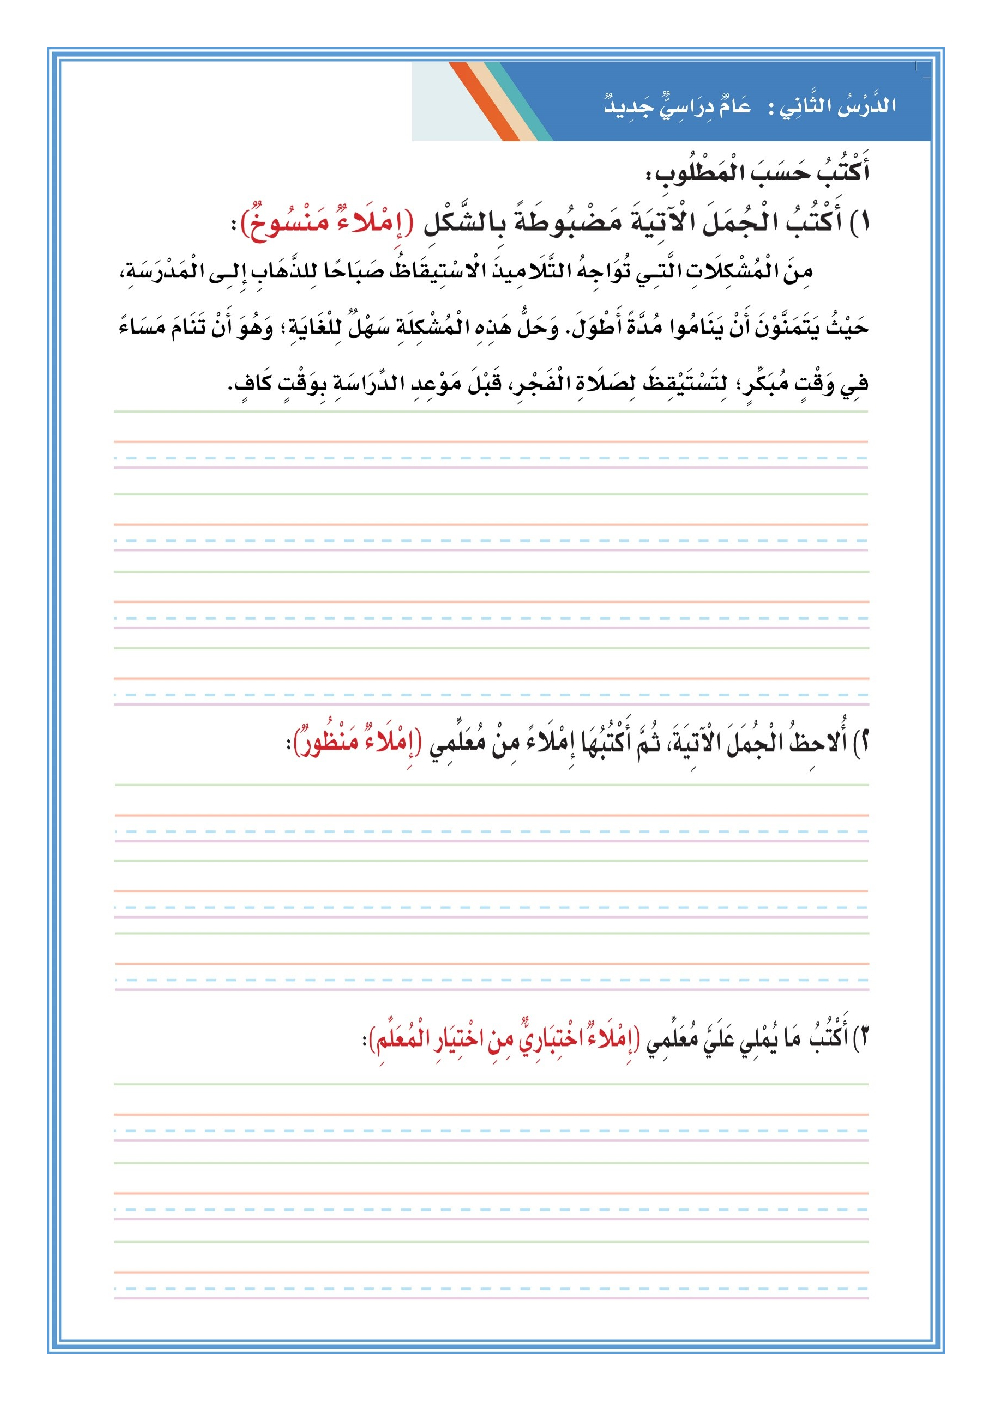 الدَّرْسُ الثَّانِي : عَامٌ دِرَاسِيٌّ جَدِيدٌ
أَكْتُبُ حَسَبَ الْمَطْلُوبِ:
١) أَكْتُبُ الْجُمَلَ الْآتِيَةَ مَضْبُوطَةً بِالشَّكْلِ (إِمْلَاءٌ مَنْسُوخٌ):
مِنَ الْمُشْكِلَاتِ الَّتِي تُوَاجِهُ التَّلَامِيذَ الْاسْتِيقَاظُ صَبَاحًا لِلذَّهَابِ إِلِى الْمَدْرَسَةِ،
حَيْثُ يَتَمَنَّوْنَ أَنْ يَنَامُوا مُدَّةً أَطْوَلَ. وَحَلُّ هَذِهِ الْمُشْكِلَةِ سَهْلٌ لِلْغَايَةِ؛ وَهُوَ أَنْ تَنَامَ مَسَاءً
فِي وَقْتٍ مُبَكِّرٍ؛ لِتَسْتَيْقِظَ لِصَلَاةِ الْفَجْرِ، قَبْلَ مَوْعِدِ الدِّرَاسَةِ بِوَقْتٍ كَافٍ.
٢) أُلَاحِظُ الْجُمَلَ الْآتِيَةَ، ثُمَّ أَكْتُبُهَا إِمْلَاءً مِنْ مُعَلِّمِي (إِمْلَاءٌ مَنْظُورٌ):
٣) أَكْتُبُ مَا يُمْلِي عَلَيَّ مُعَلِّمِي (إِمْلَاءٌ اخْتِبَارِيٌّ مِنِ اخْتِيَارِ الْمُعَلِّمِ):